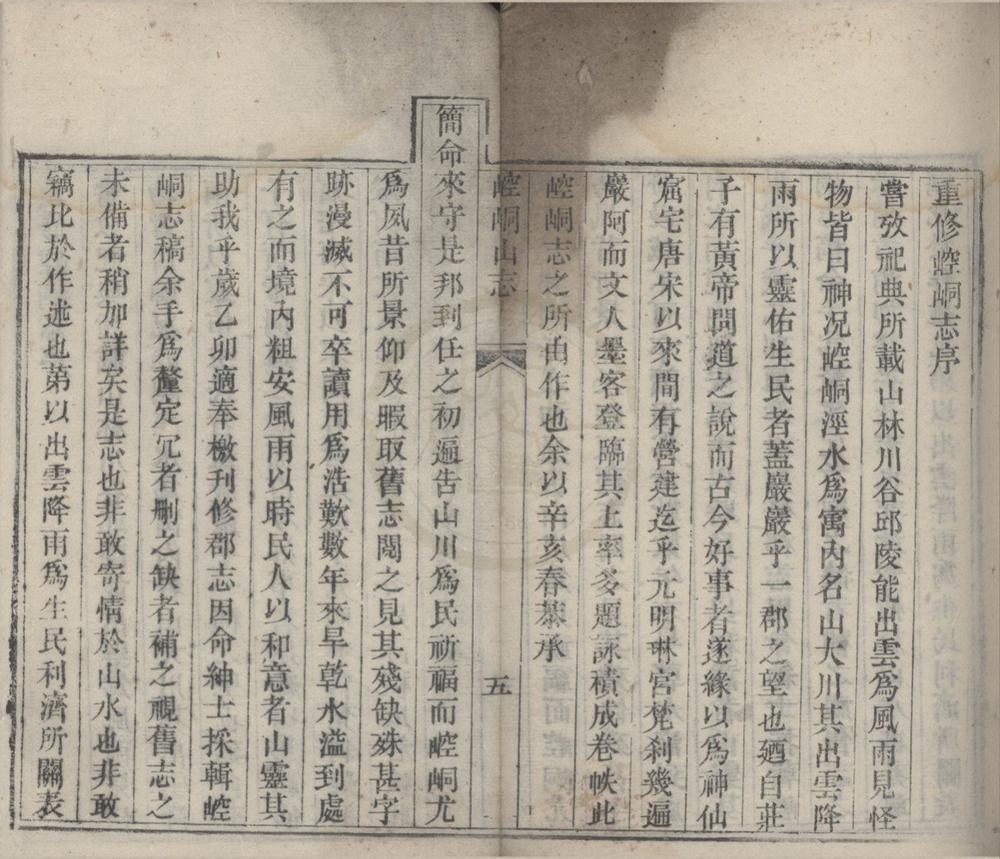 重修崆峒志序
嘗攷祀典所載山林川谷邱陵能出雲爲風雨見怪
物皆曰神況崆峒涇水爲寓內名山大川其出雲降
雨所以靈佑生民者蓋巖巖乎一郡之望也廼自莊
子有黃帝問道之說而古今好事者遂緣以爲神仙
窟宅唐宋以來間有營建迄乎元明琳宮梵刹幾遍
巖阿而文人墨客登臨其上率多題詠積成卷帙此
崆峒志之所由作也余以辛亥春恭承
崆峒山志
五
簡命來守是邦到任之初遍告山川爲民祈福而崆峒尤
爲夙昔所景仰及暇取舊志閱之見其殘缺殊甚字
跡漫滅不可卒讀用爲浩歎數年來旱乾水溢到處
有之而境內粗安風雨以時民人以和意者山靈其
助我乎歲乙卯適奉檄刊修郡志因命紳士採輯崆
峒志稿余手爲釐定冗者刪之缺者補之視舊志之
未備者稍加詳矣是志也非敢寄情於山水也非敢
竊比於作述也第以出雲降雨爲生民利濟所關表